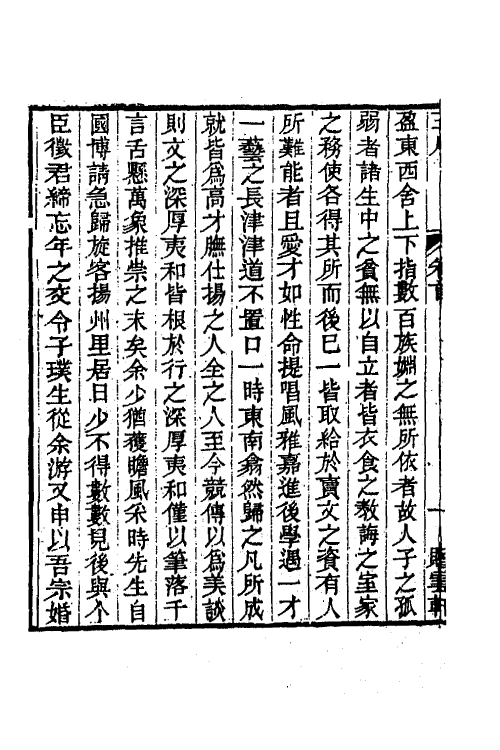 盈東西舍上下指數百族婣之無所依者故人子之孤
弱者諸生中之貧無以自立者皆衣食之教誨之室家
之務使各得其所而後已一皆取給於賣文之資有人
所難能者且愛才如性命提唱風雅嘉進後學遇一才
一藝之長津津道不置口一時東南翕然歸之凡所成
就皆爲高才膴仕揚之人全之人至今競傳以爲美談
則文之深厚夷和皆根於行之深厚夷和僅以筆落千
言舌懸萬象推崇之末矣余少猶獲瞻風采時先生自
國博請急歸旋客揚州里居日少不得數數見後與个
臣徵君締忘年之交令子璞生從余游又申以吾宗婚